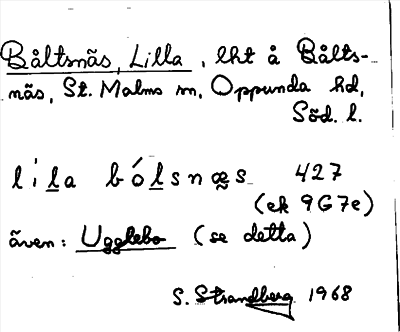 Båltsnäs, Lilla, lht å Bålts-
näs, St. Malms sn, Oppunda hd,
Söd. l.
lila bólsnæs 427
(ek 9G7e)
även: Ugglebo (se detta)
S. Strandberg 1968